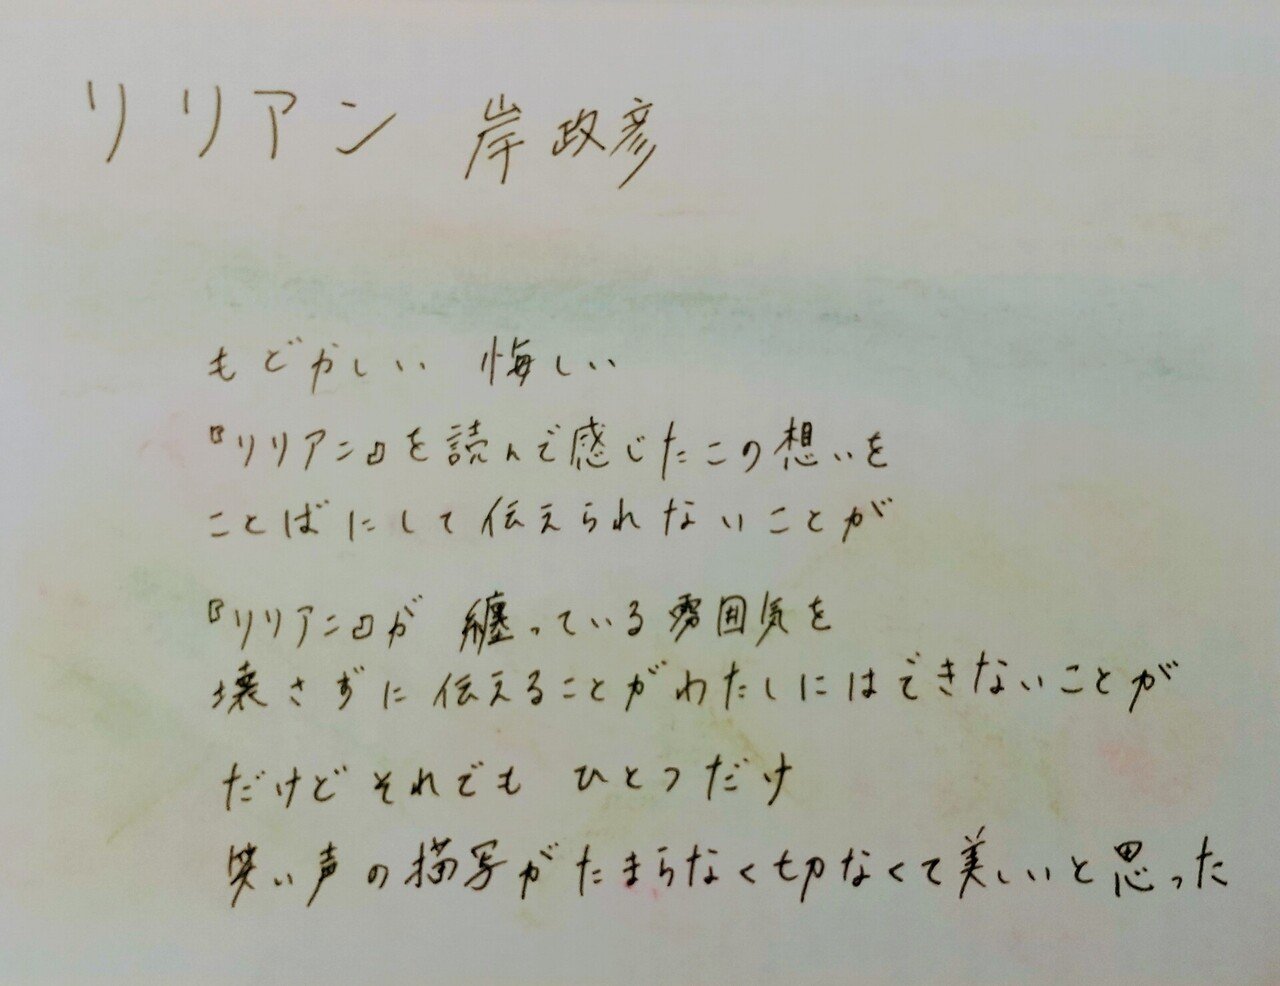 リリアン 岸政彦
もどかしい 悔しい
『リリアン』を読んで感じたこの想いを
ことばにして伝えられないことが
『リリアン』が 纏っている雰囲気を
壊さずに伝えることがわたしにはできないことが
だけどそれでも ひとつだけ
笑い声の描写がたまらなく切なくて美しいと思った